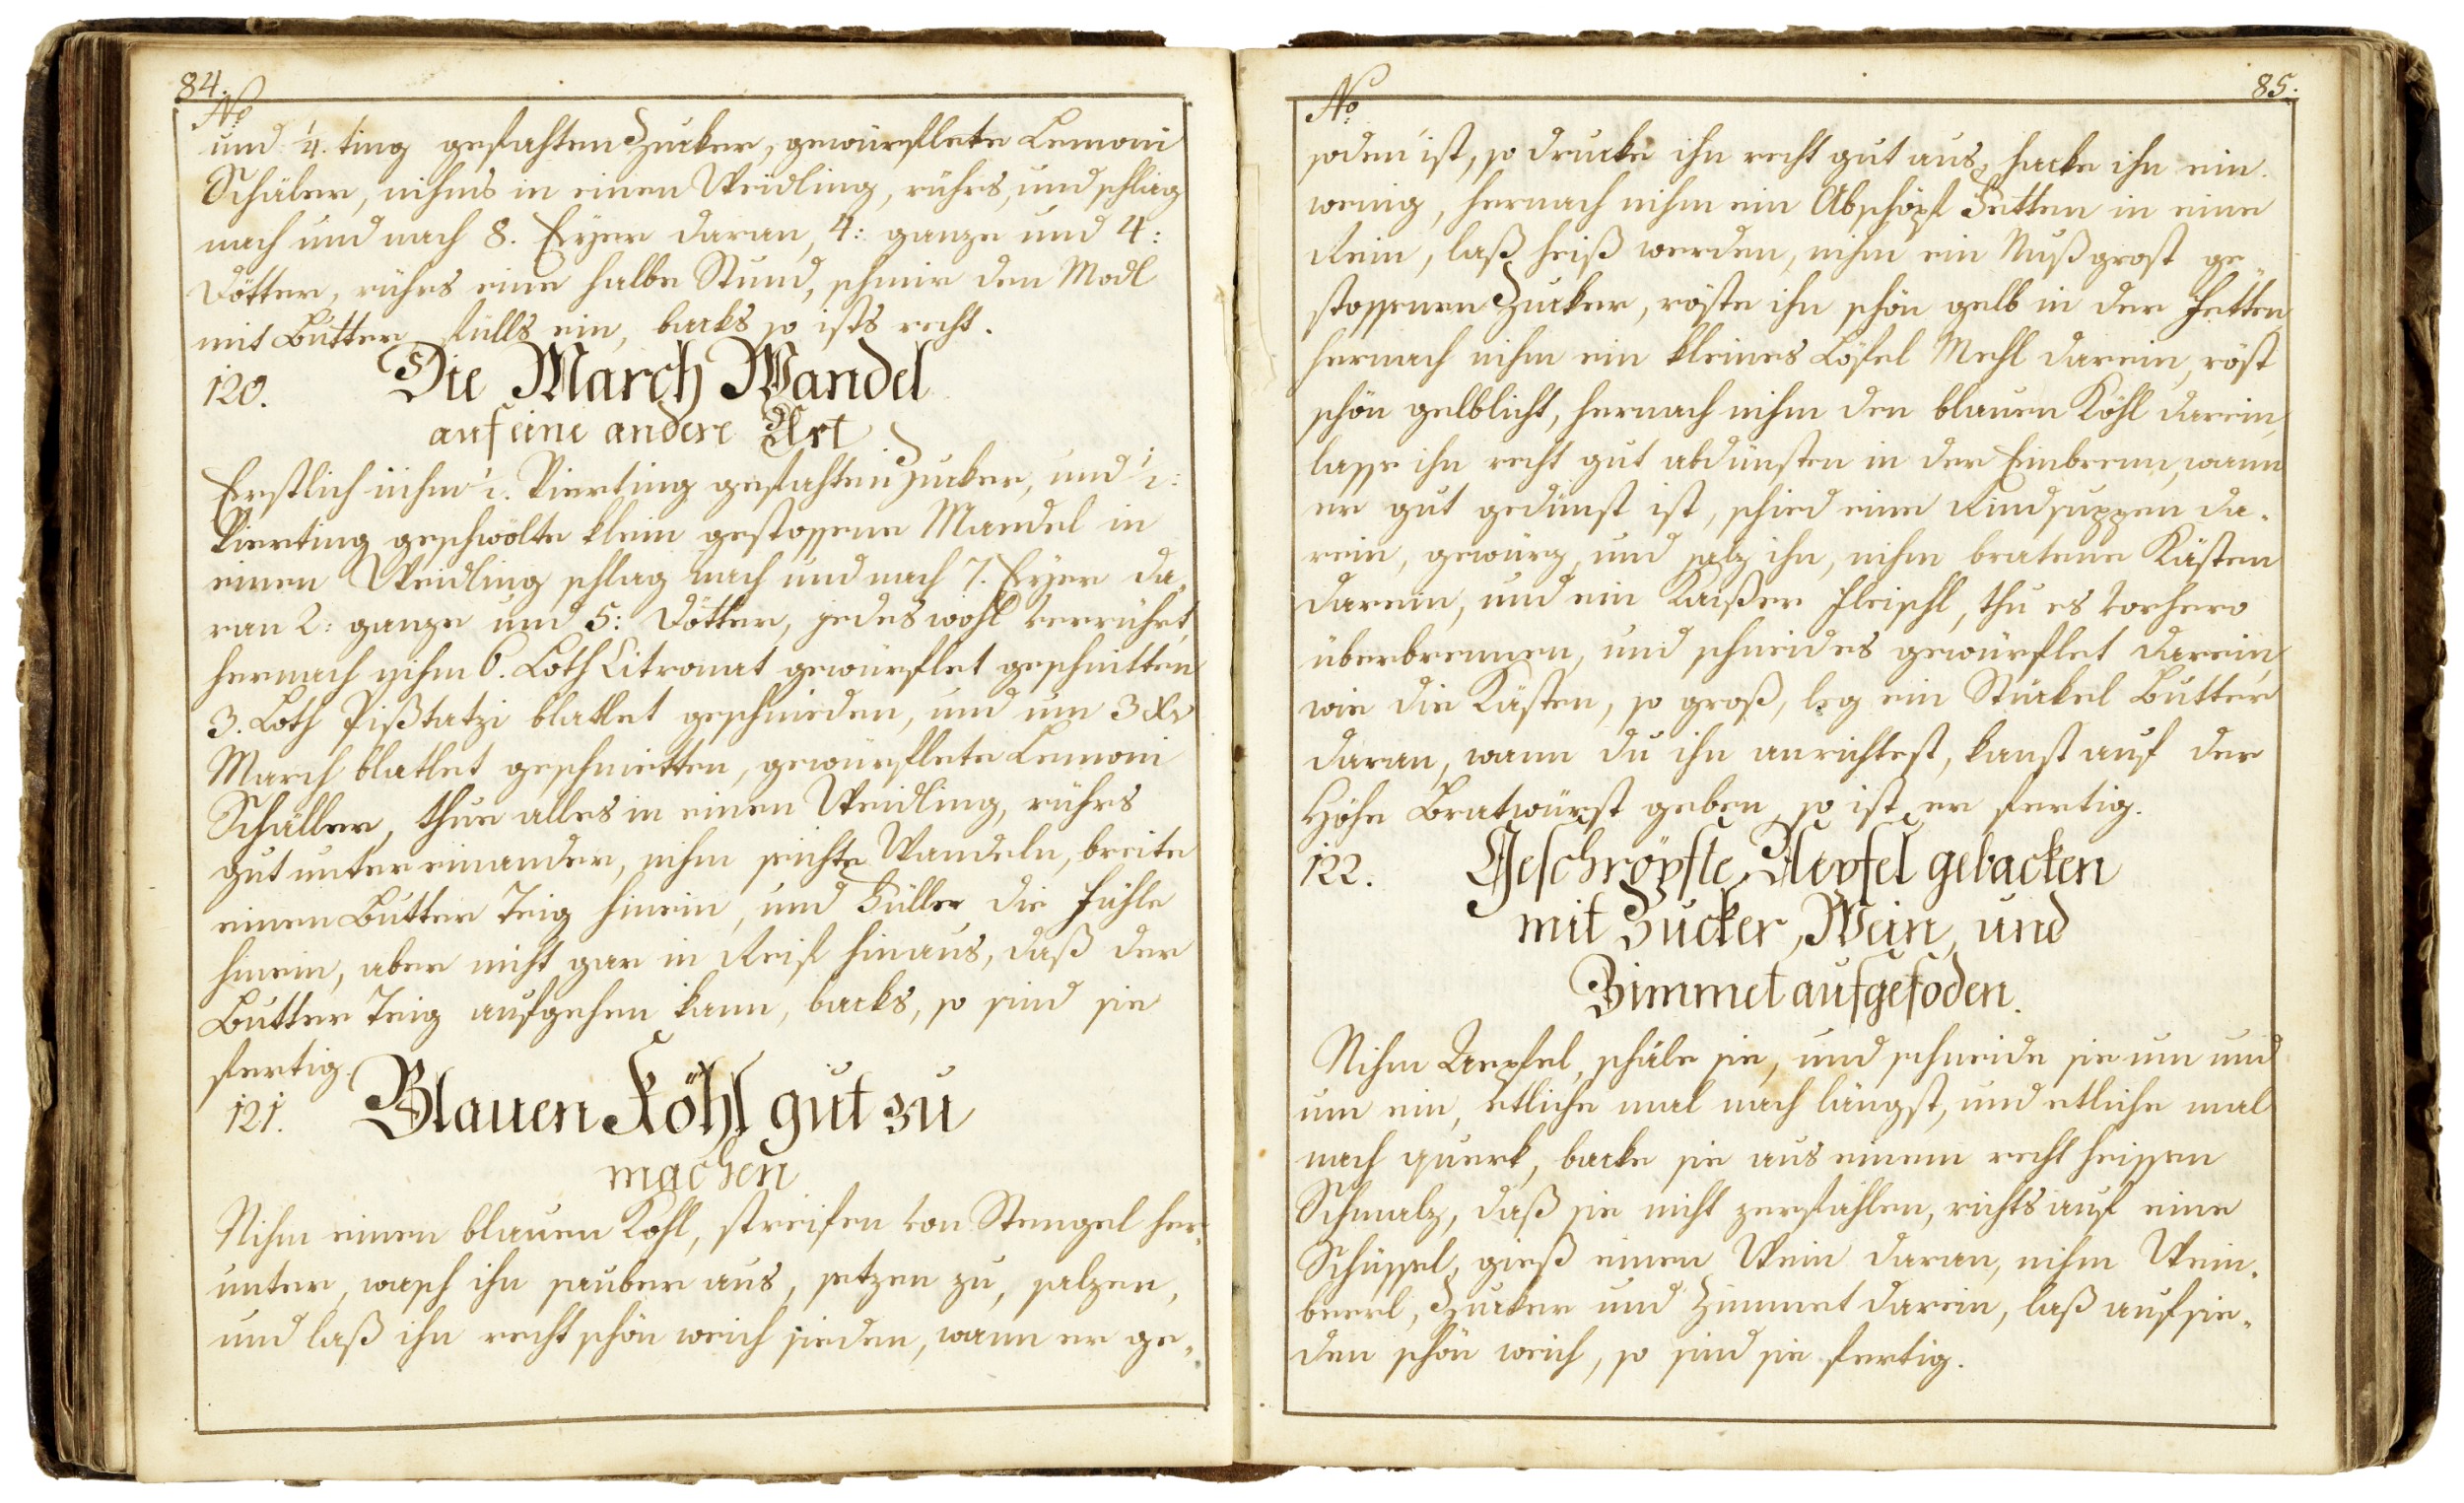 84.
No
und 4. ting gefähten Zucker, gewürflete Lemoni
Schäler, nihms in einen Weidling, rührs, und schlag
nach und nach 8. Eyer daran, 4: ganze und 4:
Dötter, rührs eine halbe Stund, schmir den Modl
mit Butter, fülls ein, backs so ists recht.
120. Die March Wandel
auf eine andere Art
Erstlich nihm 1. Vierting gefähten Zucker, und 1:
Vierting geschwölte klein gestossene Mandel in
einen Weidling schlag nach und nach 7. Eyer da¬
ran 2: ganze und 5: Dötter, jedes wohl verrührt,
hernach nihm 6. Loth Citronat gewürflet geschnitten
3. Loth Pißtatzi blatlet geschnieden, und um 3 Xr
March blatlet geschnietten, gewürflete Lemoni
Schäller, thue alles in einen Weidling, rührs
gut unter einander, nihm seichte Wandeln, breite
einen Butter Teig hinein, und Füller die Fühle
hinein, aber nicht gar in Reif hinaus, daß der
Butter Teig aufgehen kann, backs, so sind sie
fertig.
121. Blauen Köhl gut zu
machen
Nihm einen blauen Köhl, streifen von Stengel her¬
unter, wasch ihn sauber aus, setzen zu, salzen,
und laß ihn recht schön weich sieden, wann er ge¬
No
85.
soden ist, so drucke ihn recht gut aus, hacke ihn ein
wenig, hernach nihm ein Abschöpf Fetten in eine
Rein, laß heiß werden, nihm ein Nußgrost ge¬
stossenen Zucker, röste ihn schön gelb in der Fetten
hernach nihm ein kleines Löfel Mehl darein, röst
schön gelblicht, hernach nihm den blauen Köhl darein,
lasse ihn recht gut abdünsten in der Einbrenn, wann
er gut gedünst ist, schied eine Rindsuppen da¬
rein, gewürz, und salz ihn, nihm bratene Kästen
darein, und ein Kaißer Fleischl, thu es vorhero
überbrennen, und schneides gewürflet darein,
wie die Kästen, so groß, leg ein Stückel Butter
daran, wann du ihn anrichtest, kanst auf der
Höhe Bratwürst geben, so ist er fertig.
122. Geschröpfte Aepfel gebacken
mit Zucker, Wein, und
Zimmet aufgesoden.
Nihm Aepfel, schäle sie, und schneide sie um und
um ein, etliche mal nach längst, und etliche mal
nach querk, backe sie aus einem recht heissen
Schmalz, daß sie nicht zerfahlen, richts auf eine
Schüssel, gieß einen Wein daran, nihm Wein¬
beerl, Zucker und Zimmet darein, laß aufsie¬
den schön weich, so sind sie fertig.